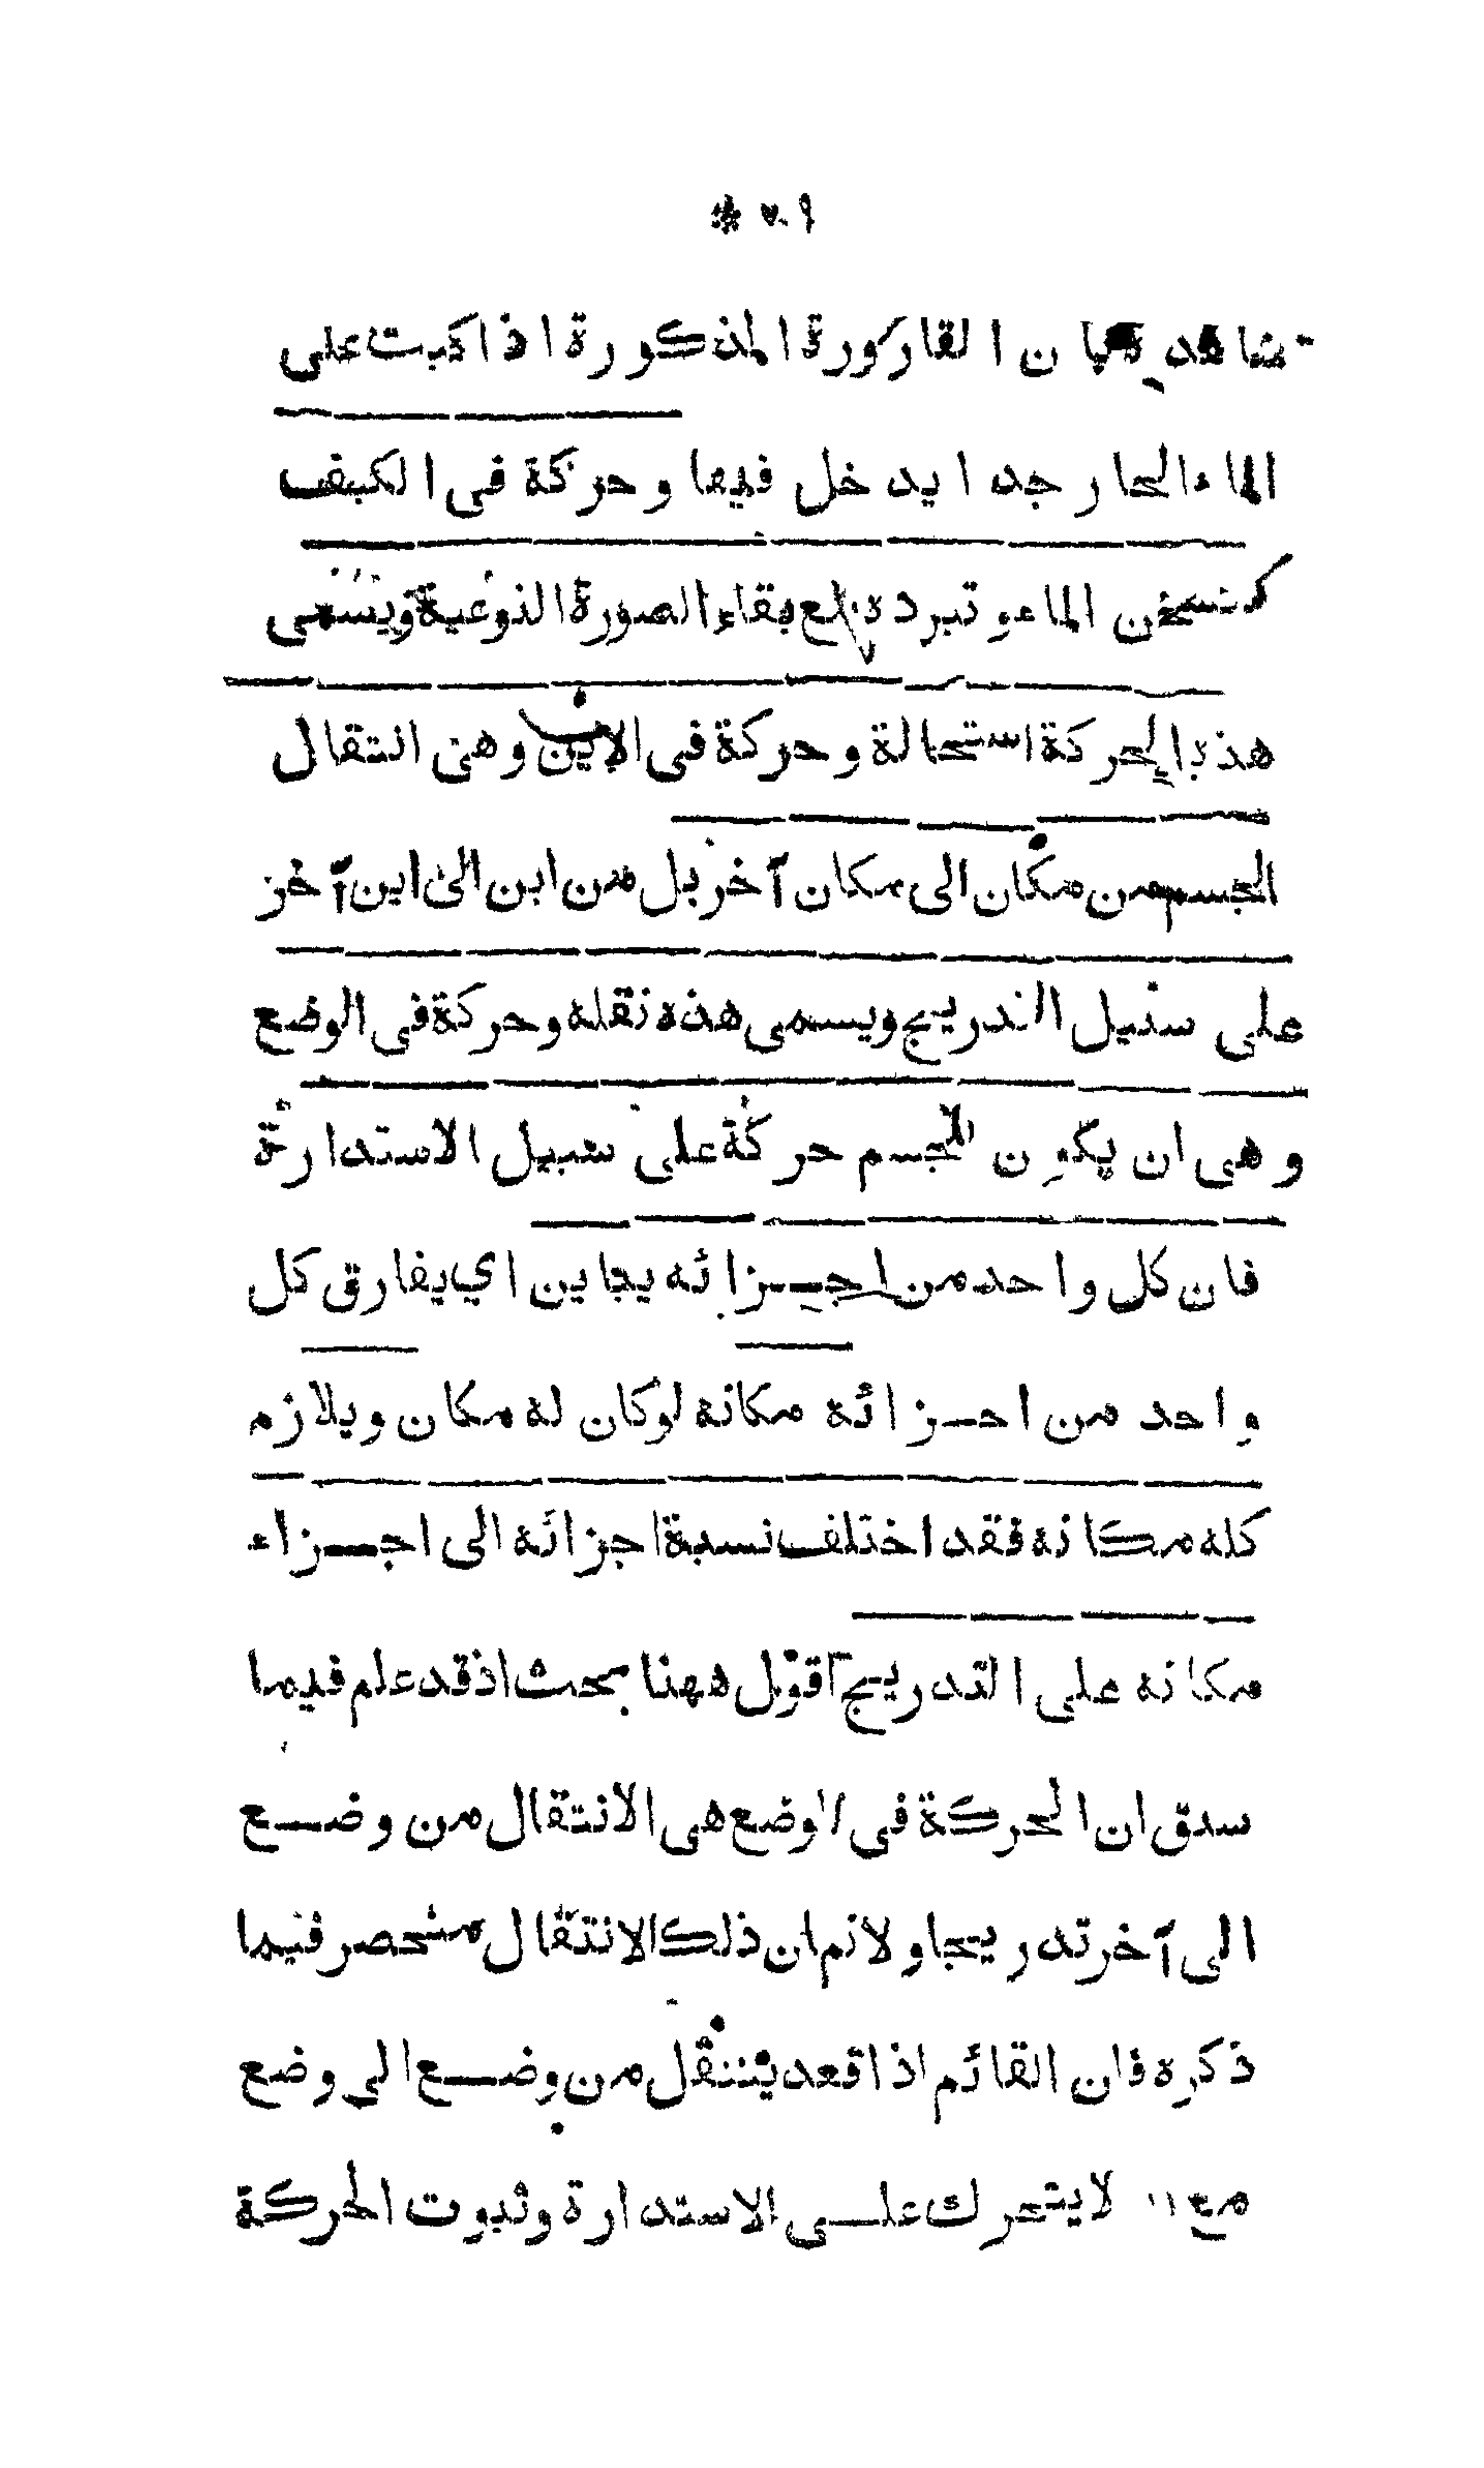 القارورة المذكورة اذا كبت على
الماء الحار جدا يدخل فيها وحركة فى الكيف
كتسخن الماء وتبرده مع بقاء الصورة النوعية ويسمى
هذه الحركة استحالة وحركة فى الاين وهى انتقال
الجسم من مكان الى مكان آخر بل من اين الى اين آخر
على سبيل التدريج ويسمى هذه نقلة وحركة فى الوضع
وهى ان يكون للجسم حركة على سبيل الاستدارة
فان كل واحد من اجزائه يباين اي يفارق كل
واحد من اجزائه مكانه لو كان له مكان ويلازم
كله مكانه فقد اختلف نسبة اجزائه الى اجزاء
مكانه على التدريج اقول ههنا بحث اذ قد علم فيما
سبق ان الحركة فى الوضع هى الانتقال من وضع
الى آخر تدريجا ولا نم ان ذلك الانتقال منحصر فيما
ذكره فان القائم اذا قعد ينتقل من وضع الى وضع
مع لا يتحرك على الاستدارة وثبوت الحركة